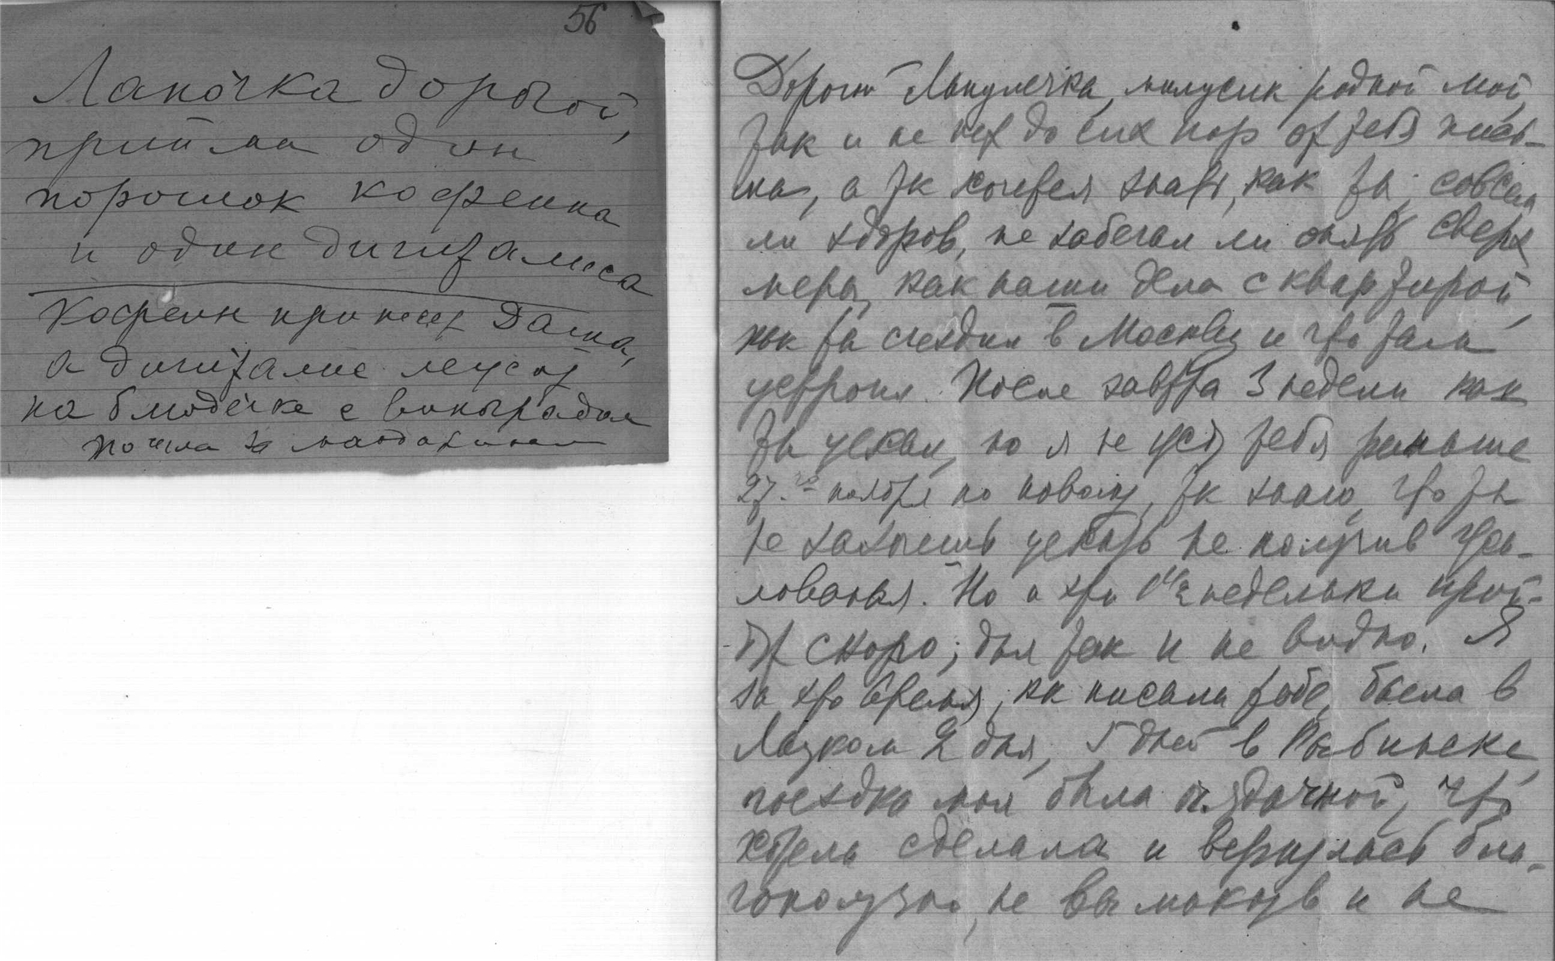 56
Лапочка дорогой,
прийми один
порошок кофеина
и один дигиталиса
Кофеин принесет Даша,
а дигиталис лежит
на блюдечке с виноградом
Пошла за мандаринами
Дорогой Лапулечка, милусик родной мой,
так и не нет до сих пор от тебя пись-
ма, а так хочется знать, как ты, совсем
ли здоров, не забегал ли опять сверх
меры, как наши дела с квартирой,
как ты съездил в Москву и что там
устроил. После завтра 3 недели как
ты уехал, но я не жду тебя раньше
27.го ноября по новому, так знаю, что ты
не захочешь уехать не получив жало-
лованья. Но и эти 1½ недельки прой-
дут скоро, дня так и не видно. Я
за это время, как писала тебе, была в
2 дня, 5 дней в Рыбинске,
поездка моя была удачной, что
хотела сделала и вернулась бла-
гополучно, не вымокнув и не